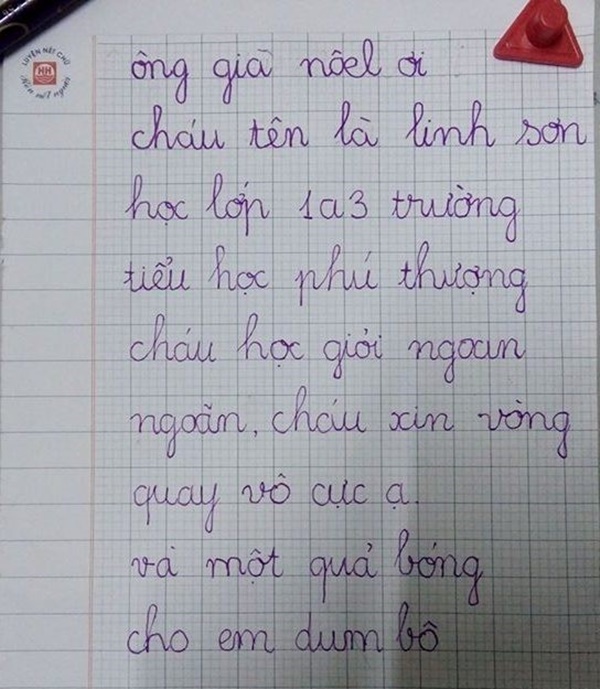 LUYỆN NÉT CHỮ
HH
Rèn nết người
ông già nôel ơi
cháu tên là linh sơn
học lớp 1a3 trường
tiểu học phú thượng
cháu học giỏi ngoan
ngoãn, cháu xin vòng
quay vô cực ạ.
và một quả bóng
cho em dum bô